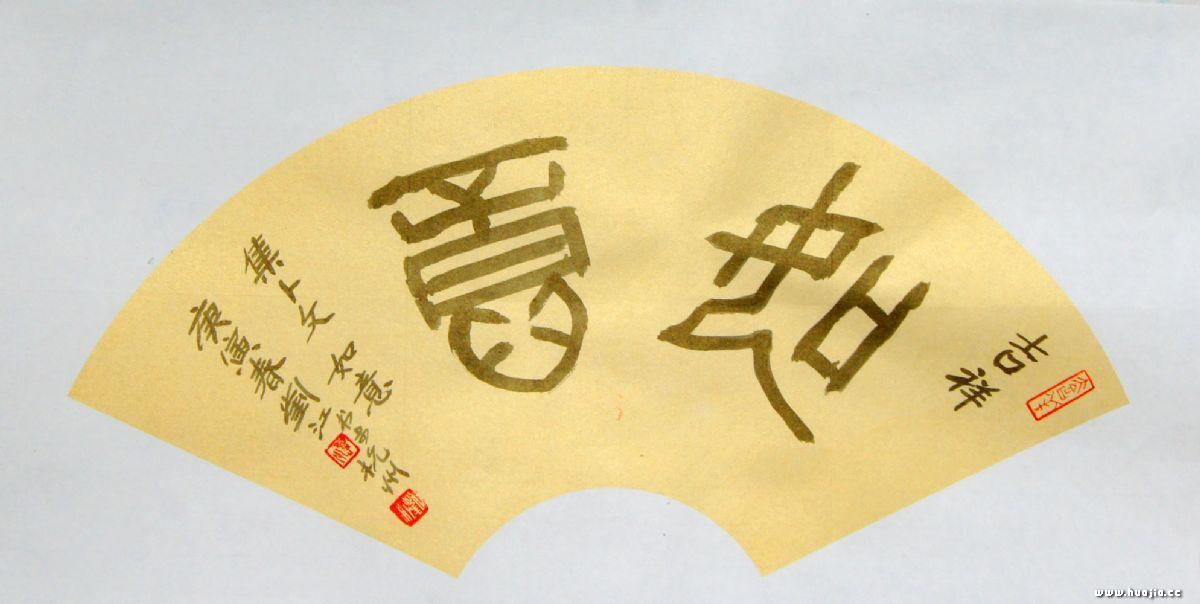 吉祥
如意
集卜文如意
庚寅春劉江书于杭州
www.huajia.cc